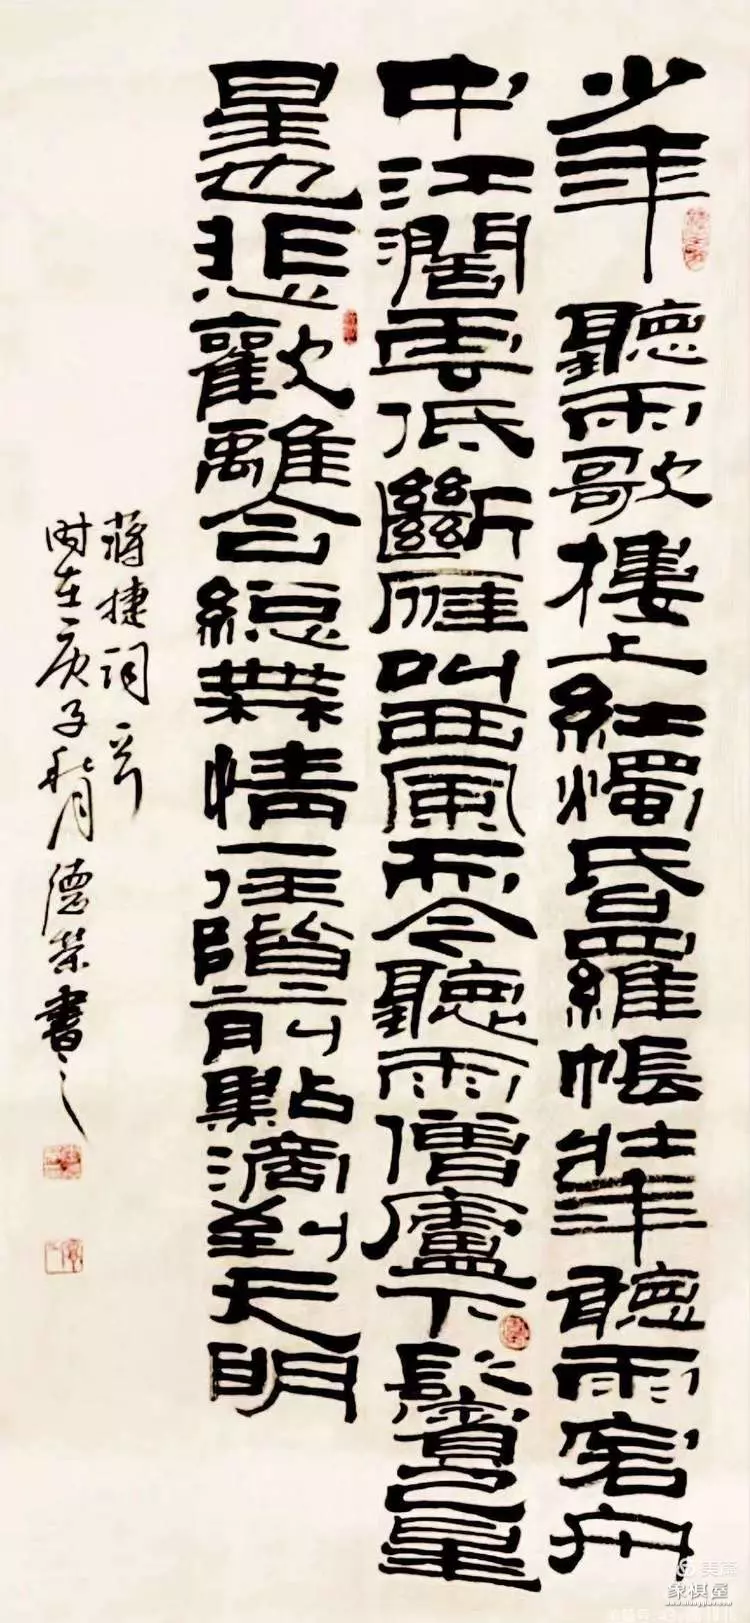 少年聽雨歌樓上紅燭昏羅帳壯年聽雨客舟
中江濶雲低斷雁叫西風而今聽雨僧廬下鬢已星
星也悲歡離合總無情一任階前點滴到天明
蒋捷詞一首
时在庚子秋月德荣書之
美篇
象棋屋